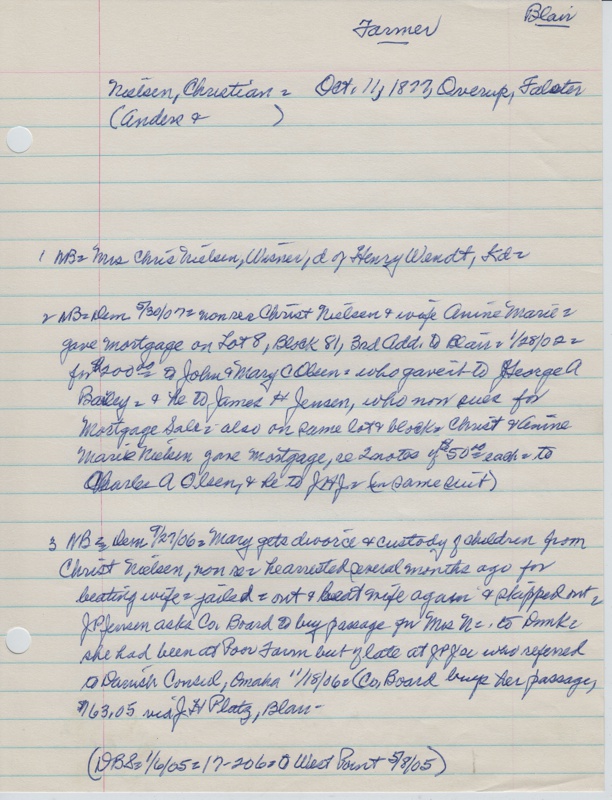 Blair
Farmer
Nielsen, Christian = Oct. 11, 1877, Overup, Falster
(Anders & )
1 NB = Mrs Chris Nielsen, Wisner, d of Henry Wendt, Kd =
2 NB = Dem 5/30/07 = non res Christ Nielsen & wife Anine Marie =
gave mortgage on Lot 8, Block 81, 3rd Add. to Blair = 1/28/02 =
for $200.00 = to John & Mary C Olsen = who gave it to George A
Bailey = & he to James H Jensen, who now sues for
Mortgage Sale = also on same lot & block = Christ & Anine
Marie Nielsen gave mortgage, se 2 notes of $50.00 each = to
Charles A Olsen, & he to JHJ = (in same suit)
3 NB = Dem 9/27/06 = Mary gets divorce & custody of children from
Christ Nielsen, non res = he arrested several months ago for
beating wife = jailed = out & beat wife again & skipped out =
JP Jensen asks Co. Board to buy passage for Mrs N =. to Dmk =
she had been at Poor Farm but of late at JPJs who referred
to Danish Consul, Omaha 11/18/06 = Co. Board buys her passage,
$63.05 via J H Platz, Blair -
(DBS = 1/6/05 = 17-206 = West Point 5/8/05)